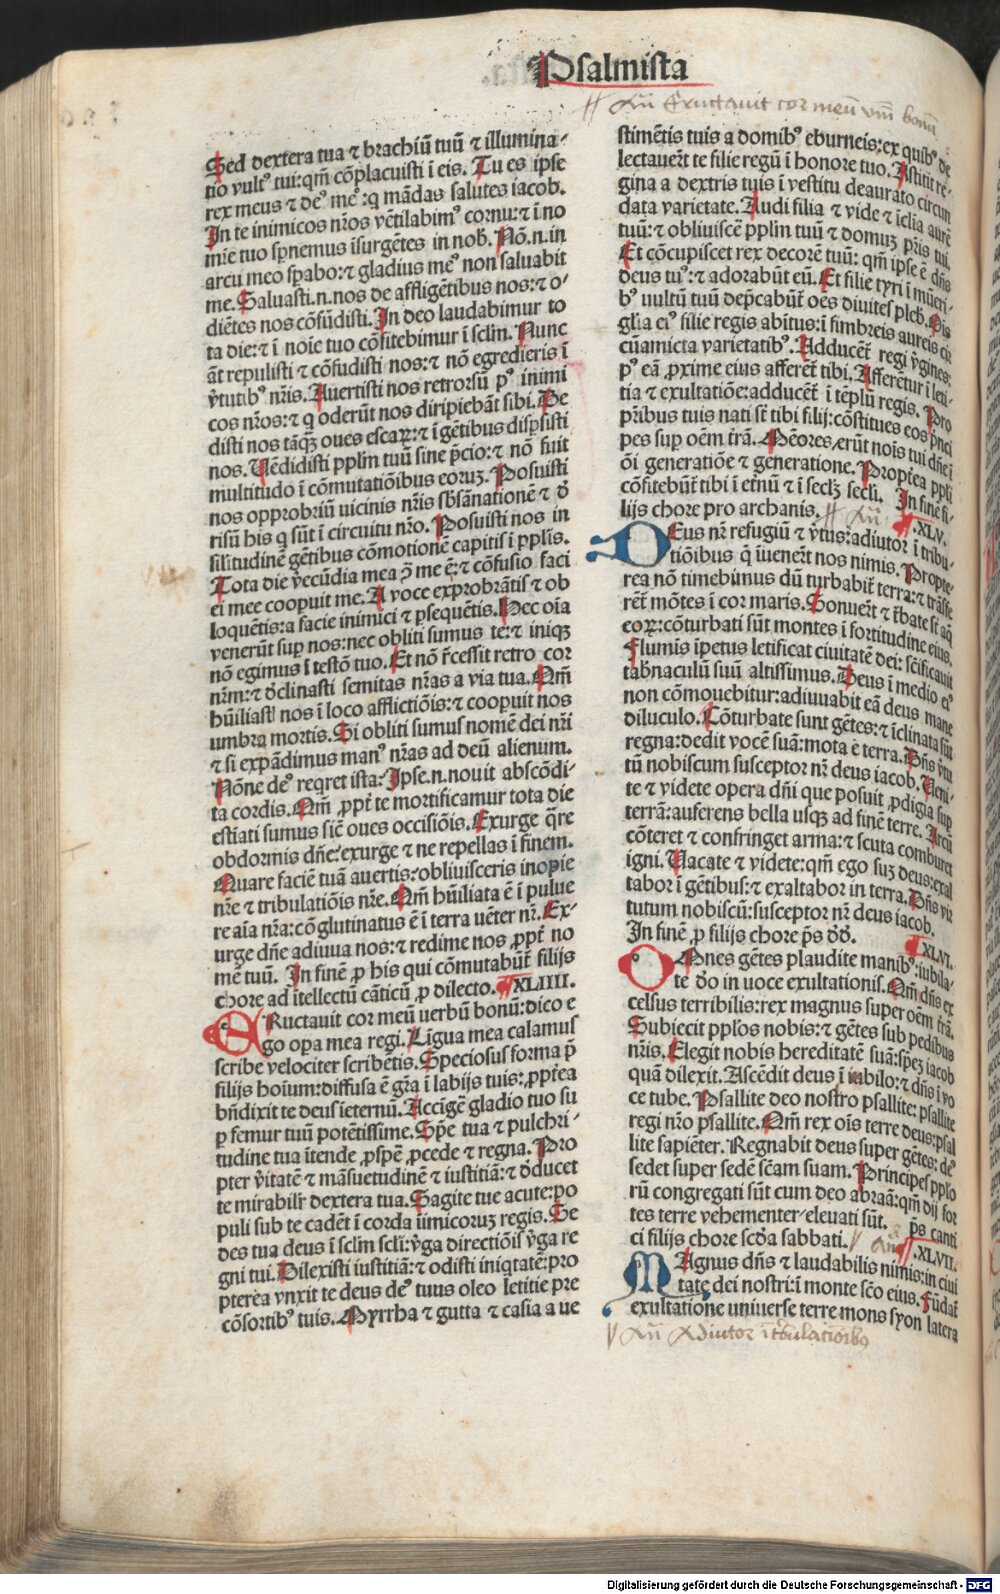 Psalmista
Añ Eructauit cor meũ vm̄ bonũ
Sed dextera tua ⁊ brachiũ tuũ ⁊ illumina-
tio vultꝰ tui: qm̃ cõplacuisti ĩ eis. Tu es ipse
rex meus ⁊ deꝰ meꝰ: q mãdas salutes iacob.
In te inimicos nr̃os vẽtilabimꝰ cornu: ⁊ ĩ no
mĩe tuo sp̃nemus ĩsurgẽtes in nob̃. Nõ.n.in
arcu meo sp̃abo: ⁊ gladius meꝰ non saluabit
me. Saluasti.n.nos de affligẽtibus nos: ⁊ o-
diẽtes nos cõfũdisti. In deo laudabimur to
ta die: ⁊ ĩ noĩe tuo cõfitebimur ĩ sc̃lm̃. Nunc
ãt repulisti ⁊ cõfudisti nos: ⁊ nõ egredieris ĩ
ṽtutibꝰ nr̃is. Auertisti nos retrorsũ pꝰ inimi
cos nr̃os: ⁊ q oderũt nos diripiebãt sibi. De
disti nos tãqꝫ oues escaꝝ: ⁊ ĩ gẽtibus disp̃sisti
nos. Uẽdidisti pplm̃ tuũ sine p̃cio: ⁊ nõ fuit
multitudo ĩ cõmutatiõibus eoruꝫ. Posuisti
nos opprobriũ uicinis nr̃is sb̃sãnationẽ ⁊ ð
risũ his q sũt ĩ circuitu nr̃o. Posuisti nos in
sil̃itudinẽ gẽtibus cõmotionẽ capitis ĩ pplis.
Tota die ṽecũdia mea ꝯ̃ me ẽ: ⁊ cõfusio faci
ei mee coopuit me. A voce exprobrãtis ⁊ ob
loquẽtis: a facie inimici ⁊ p̱sequẽtis. Hec oĩa
venerũt sup̱ nos: nec obliti sumus te: ⁊ iniqꝫ
nõ egimus ĩ testõ tuo. Et nõ r̃cessit retro cor
nr̃m: ⁊ ðclinasti semitas nr̃as a via tua. Qm̃
hũiliasti nos ĩ loco afflictiõis: ⁊ coopuit nos
umbra mortis. Si obliti sumus nomẽ dei nr̃i
⁊ si expãdimus manꝰ nr̃as ad deũ alienum.
Nõne deꝰ reqret ista: Ipse.n.nouit abscõdi-
ta cordis. Qm̃ ꝓpt̃ te mortificamur tota die
estiati sumus sic̃ oues occisiõis. Exurge q̃re
obdormis dñe: exurge ⁊ ne repellas ĩ finem.
Quare faciẽ tuã auertis: obliuisceris inopie
nr̃e ⁊ tribulatiõis nr̃e. Qm̃ hũiliata ẽ ĩ pulue
re aĩa nr̃a: cõglutinatus ẽ ĩ terra uẽter nr̃. Ex-
urge dñe adiuua nos: ⁊ redime nos ꝓpt̃ no
mẽ tuũ. In finẽ ꝓ his qui cõmutabũt̃ filijs
chore ad ĩtellectũ cãticũ ꝓ dilecto. XLIIII.
ERuctauit cor meũ uerbũ bonũ: dico e
go opa mea regi. Lĩgua mea calamus
scribe velociter scribẽtis. Speciosus forma p̃
filijs hoĩum: diffusa ẽ gr̃a ĩ labijs tuis: ꝓpt̃ea
bñdixit te deus ĩeternũ. Accĩgẽ gladio tuo su
ꝑ femur tuũ potẽtissime. Sp̃e tua ⁊ pulchri-
tudine tua ĩtende ꝓspẽ ꝓcede ⁊ regna. Pro
pter ṽitatẽ ⁊ mãsuetudinẽ ⁊ iustitiã: ⁊ ðducet
te mirabilr̃ dextera tua. Sagite tue acute: po
puli sub te cadẽt ĩ corda iĩmicoruꝫ regis. Se
des tua deus ĩ sc̃lm̃ scl̃i: ṽga directiõis ṽga re
gni tui. Dilexisti iustitiã: ⁊ odisti iniqtatẽ: pro
pterea vnxit te deus deꝰ tuus oleo letitie pre
cõsortibꝰ tuis. Myrrha ⁊ gutta ⁊ casia a ue
stimẽtis tuis a domibꝰ eburneis: ex quibꝰ de
lectauer̃t te filie regũ ĩ honore tuo. Astitit re-
gina a dextris tuis ĩ vestitu deaurato circun
data varietate. Audi filia ⁊ vide ⁊ ĩclĩa aurẽ
tuũ: ⁊ obliuiscẽ pplm̃ tuũ ⁊ domuꝫ pr̃is tui.
Et cõcupiscet rex decorẽ tuũ: qm̃ ipse ẽ dñs
deus tuꝰ: ⁊ adorabũt eũ. Et filie tyri ĩ mũeri-
bꝰ uultũ tuũ dep̃cabũt̃ oẽs diuites pleb̃. Oĩs
gl̃ia eiꝰ filie regis abĩtus: ĩ fimbreis aureis cir
cũamicta varietatibꝰ. Adducẽt̃ regi ṽgines:
pꝰ eã ꝓxime eius afferẽt̃ tibi. Afferẽtur ĩ leti-
tia ⁊ exultatiõe: adducẽt̃ ĩ tẽplũ regis. Pro
pr̃ibus tuis nati sũt tibi filij: cõstitues eos p̃nci
pes sup̱ oẽm tr̃ã. Mẽores erũt nois tui dñe ĩ
õi generatiõe ⁊ generatione. Propt̃ea ppli
cõfitebũt̃ tibi ĩ et̃nũ ⁊ ĩ seclꝫ secli. In finẽ fi-
lijs chore pro archanis. Añ .XLV.
DEus nr̃ refugiũ ⁊ ṽtus: adiutor ĩ tribu-
tiõibus q̃ ĩuener̃t nos nimis. Propte-
rea nõ timebimus dũ turbabit̃ terra: ⁊ trãsfe
rẽt̃ mõtes ĩ cor maris. Sonuer̃t ⁊ t̃bate st̃ aq̃
eoꝝ: cõturbati sũt montes ĩ fortitudine eius.
Flumis ĩpetus letificat ciuitatẽ dei: sc̃ificauit
tab̃naculũ suũ altissimus. Deus ĩ medio eiꝰ
non cõmouebitur: adiuuabit eã deus mane
diluculo. Cõturbate sunt gẽtes: ⁊ ĩclinata sũt
regna: dedit vocẽ suã: mota ẽ terra. Dñs ṽtu
tũ nobiscum susceptor nr̃ deus iacob. Ueni-
te ⁊ videte opera dñi que posuit ꝓdigia sup̱
terrã: auferens bella usqꝫ ad finẽ terre. Arcũ
cõteret ⁊ confringet arma: ⁊ scuta comburet
igni. Uacate ⁊ videte: qm̃ ego suꝫ deus: exal
tabor ĩ gẽtibus: ⁊ exaltabor in terra. Dñs vir
tutum nobiscũ: susceptor nr̃ deus iacob.
In finẽ ꝓ filijs chore ps̃ ðð. XLVI.
OMnes gẽtes plaudite manibꝰ: iubila-
te ðo in uoce exultationis. Qm̃ dñs ex
celsus terribilis: rex magnus super oẽm tr̃ã.
Subiecit pplos nobis: ⁊ gẽtes sub pedibus
nr̃is. Elegit nobis hereditatẽ suã: spẽꝫ iacob
quã dilexit. Ascẽdit deus ĩ iubilo: ⁊ dñs ĩ vo
ce tube. Psallite deo nostro psallite: psallite
regi nr̃o psallite. Qm̃ rex oĩs terre deus: psal
lite sapiẽter. Regnabit deus super gẽtes: deꝰ
sedet super sedẽ sc̃am suam. Principes pplo
rũ congregati sũt cum deo abraã: qm̃ dij for
tes terre vehementer eleuati sũt. ps̃ canti
ci filijs chore sc̃ða sabbati. Añ .XLVII.
MAgnus dñs ⁊ laudabilis nimis: in ciui
tate dei nostri: ĩ monte sc̃o eius. Fũdat̃
exultatione uniuerse terre mons syon latera
Añ Adiutor ĩ tribulacionibꝰ
Digitalisierung gefördert durch die Deutsche Forschungsgemeinschaft - DFG